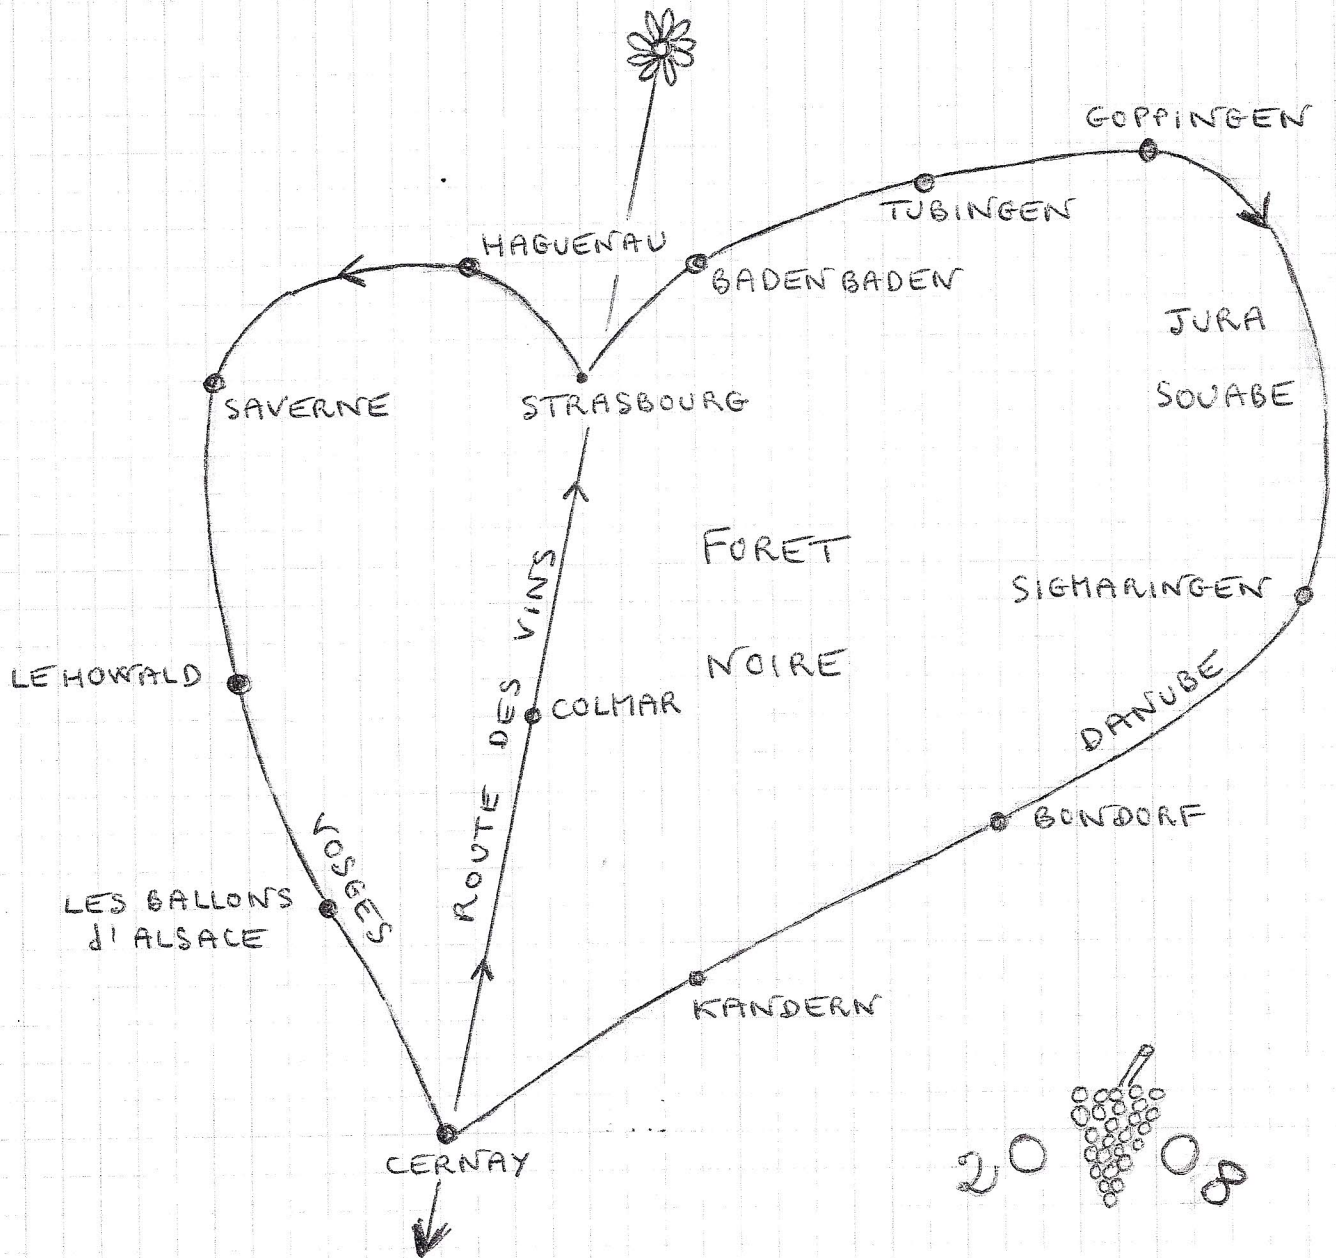 GOPPINGEN
TUBINGEN
HAGUENAU
BADEN BADEN
JURA
SOUABE
SAVERNE
STRASBOURG
FORET
NOIRE
SIGMARINGEN
LE HOWALD
COLMAR
ROUTE DES VINS
DANUBE
BONDORF
VOSGES
LES BALLONS
d'ALSACE
KANDERN
CERNAY
2008